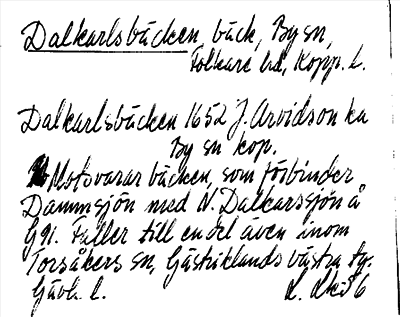 Dalkarlsbäcken, bäck, By sn,
Folkare hd, Kopp. l.
Dalkarlsbäcken 1652 J. Arvidson ka
By sn kop.
Motsvarar bäcken, som förbinder
Dammsjön med N. Dalkarssjön å
GK. Faller till en del även inom
Torsåkers sn, Gästriklands västra tg.
Gävl. l.